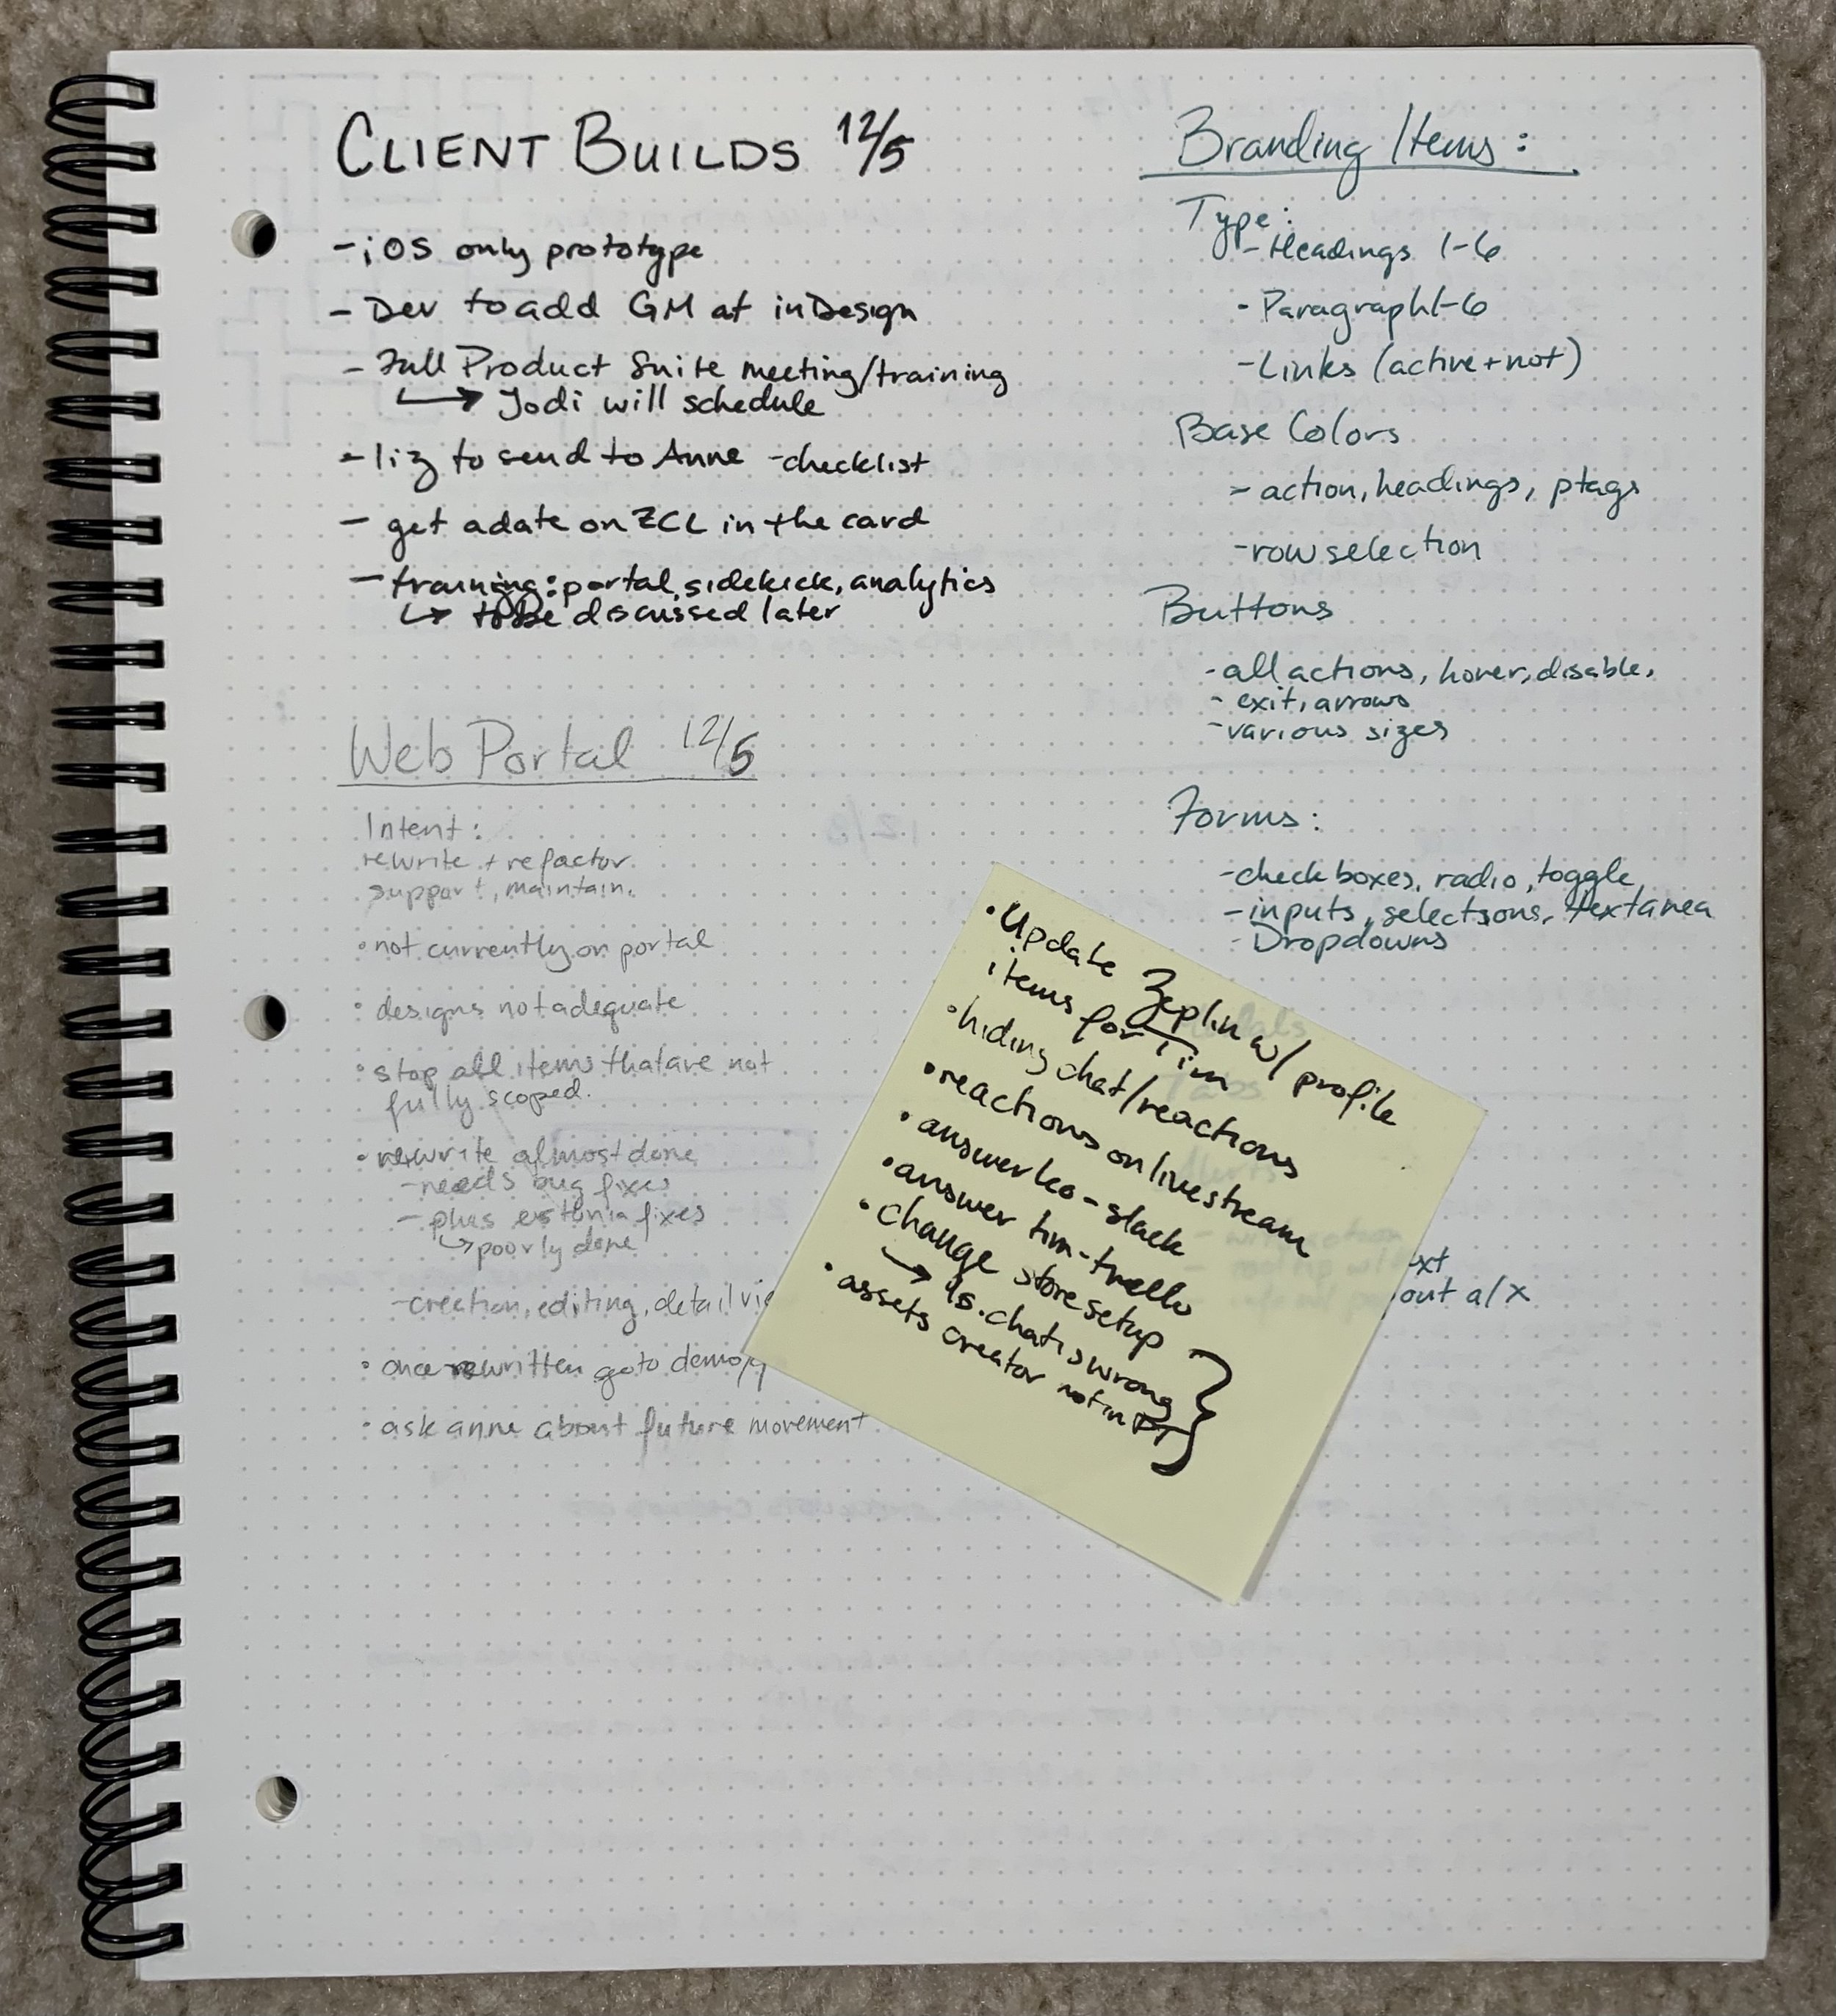 CLIENT BUILDS 12/5
- iOS only prototype
- Dev to add GM at inDesign
- Full Product Suite meeting/training
↳ Jodi will schedule
- liz to send to Anne - checklist
- get a date on ZCL in the card
- training: portal, sidekick, analytics
↳ to be discussed later
Web Portal 12/5
Intent:
rewrite + refactor
support, maintain.
• not currently on portal
• designs not adequate
• stop all items that are not
fully scoped.
• rewrite almost done
- needs bug fixes
- plus estonia fixes
↳ poorly done
- creation, editing, detail
• once rewritten go to demo/
• ask anne about future movement
Branding Items:
Type:
- Headings 1-6
- Paragraph 1-6
- Links (active + not)
Base Colors
- action, headings, ptags
- row selection
Buttons
- all actions, hover, disable,
- exit, arrows
- various sizes
Forms:
- check boxes, radio, toggle
- inputs, selectsons, textarea
- Dropdowns
Tabs
out a/x
• Update Zeplin w/ profile
items for Tim
• hiding chat/reactions
• reactions on livestream
• answer leo - slack
• answer tim - trello
• change store setup
→ ls. chat is wrong
• assets creator not in PT